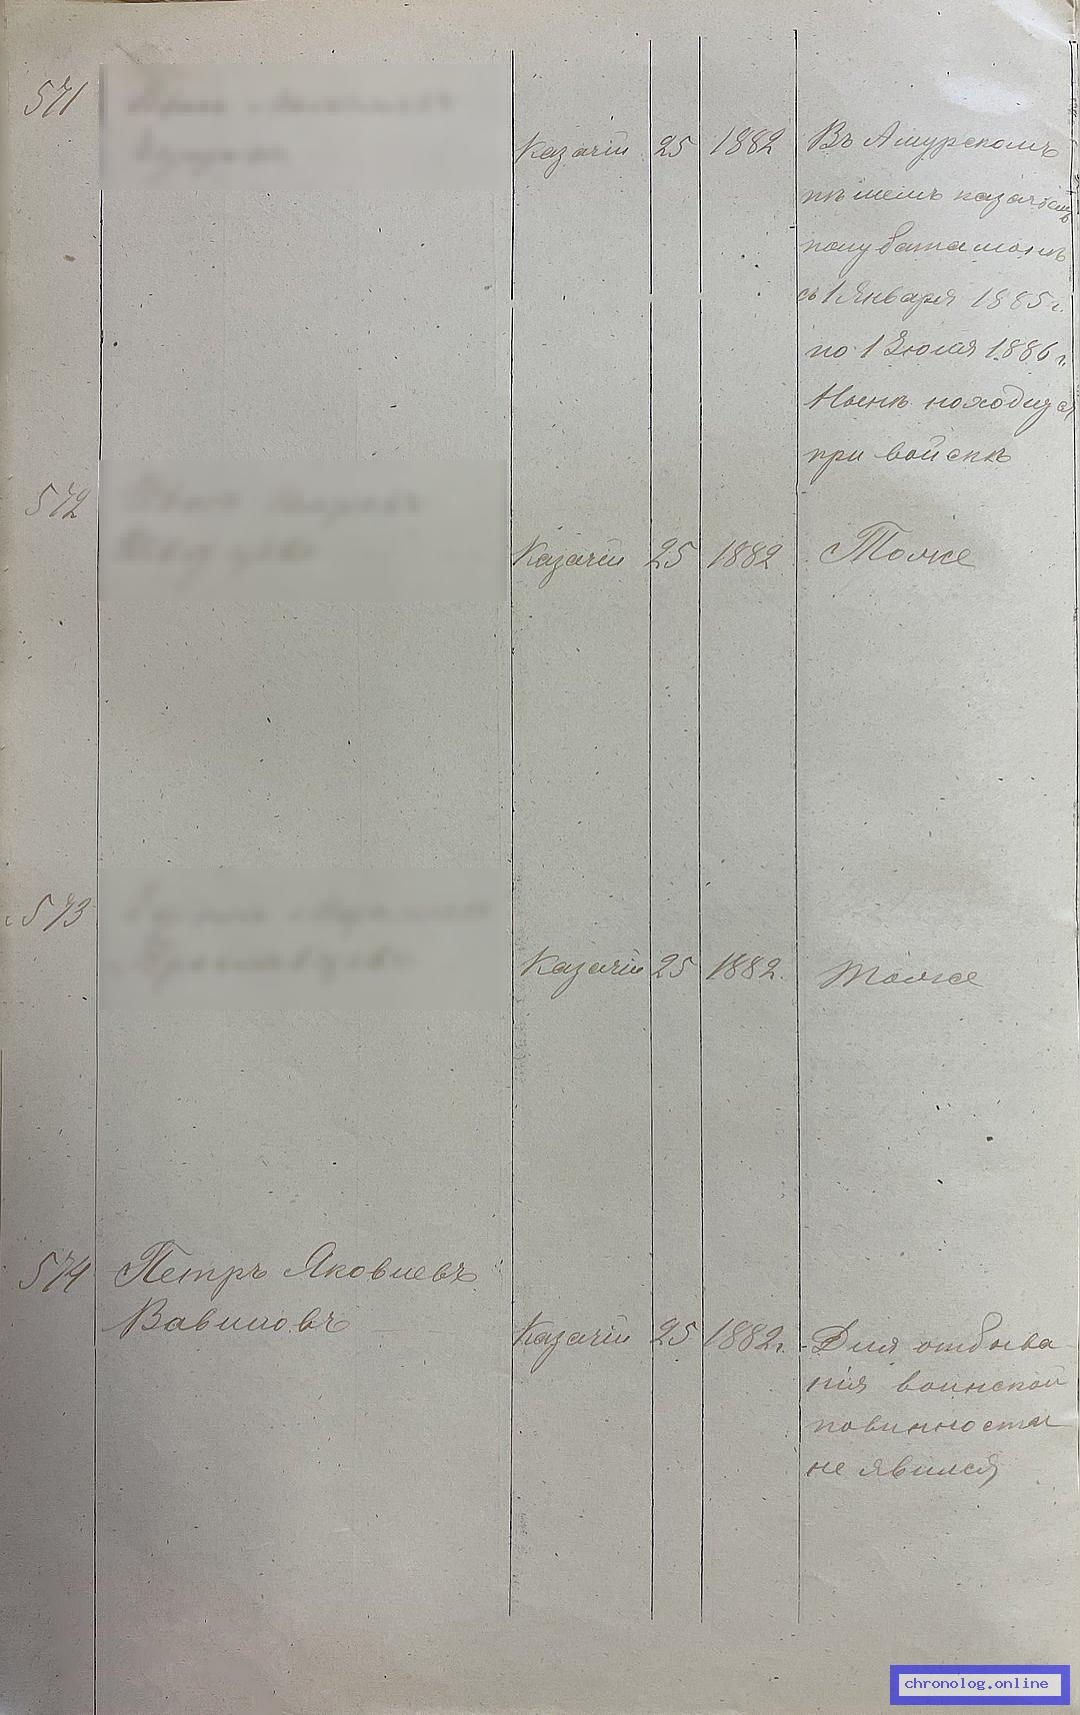 571
Казачiй 25 1882 Въ Амурскомъ
пѣшемъ казачьемъ
полубаталiонѣ
съ 1 Января 1885 г.
по 1 Iюля 1886 г.
Нынѣ находится
при войскѣ
572
Казачiй 25 1882 Тоже
573
Казачiй 25 1882. Тоже
574 Петръ Яковлевъ
Вавиловъ
Казачiй 25 1882 г. Для отбыва
нiя воинской
повинности
не явился
chronolog.online